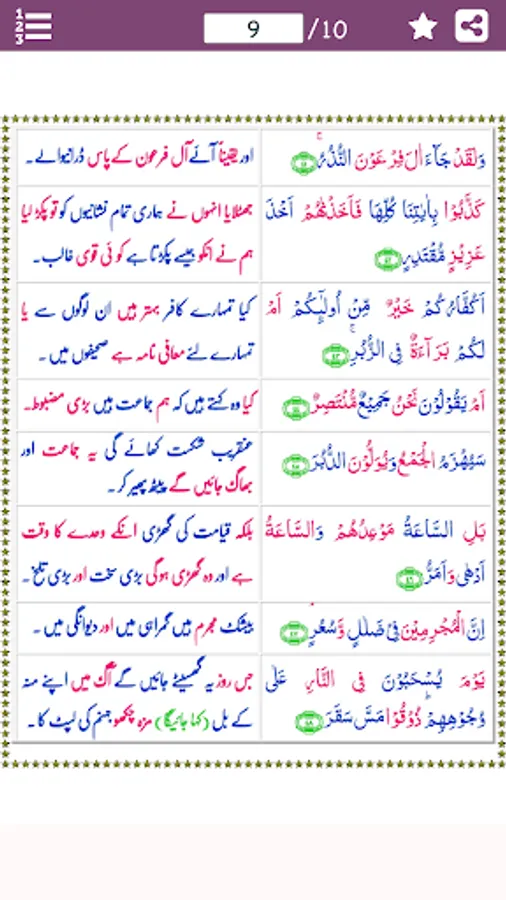 1
2
3
9 /10
وَلَقَدْ جَآءَ اٰلَ فِرْعَوْنَ النُّذُرُ ۚ ﴿٤١﴾
اور یقیناً آئے آل فرعون کے پاس ڈرانیوالے۔
كَذَّبُوْا بِاٰيٰتِنَا كُلِّهَا فَاَخَذْنٰهُمْ اَخْذَ
عَزِيْزٍ مُّقْتَدِرٍ ﴿٤٢﴾
جھٹلایا انہوں نے ہماری تمام نشانیوں کو تو پکڑ لیا
ہم نے انکو جیسے پکڑتا ہے کوئی قوی غالب۔
اَكُفَّارُكُمْ خَيْرٌ مِّنْ اُولٰٓئِكُمْ اَمْ
لَكُمْ بَرَآءَةٌ فِى الزُّبُرِ ۚ ﴿٤٣﴾
کیا تمہارے کافر بہتر ہیں ان لوگوں سے یا
تمہارے لئے معافی نامہ ہے صحیفوں میں۔
اَمْ يَقُوْلُوْنَ نَحْنُ جَمِيْعٌ مُّنْتَصِرٌ ﴿٤٤﴾
کیا وہ کہتے ہیں کہ ہم جماعت ہیں بڑی مضبوط۔
سَيُهْزَمُ الْجَمْعُ وَيُوَلُّوْنَ الدُّبُرَ ﴿٤٥﴾
عنقریب شکست کھائے گی یہ جماعت اور
بھاگ جائیں گے پیٹھ پھیر کر۔
بَلِ السَّاعَةُ مَوْعِدُهُمْ وَالسَّاعَةُ
اَدْهٰى وَاَمَرُّ ﴿٤٦﴾
بلکہ قیامت کی گھڑی انکے وعدے کا وقت
ہے اور وہ گھڑی ہوگی بڑی سخت اور بڑی تلخ۔
اِنَّ الْمُجْرِمِيْنَ فِىْ ضَلٰلٍ وَّسُعُرٍ ۘ ﴿٤٧﴾
بیشک مجرم ہیں گمراہی میں اور دیوانگی میں۔
يَوْمَ يُسْحَبُوْنَ فِى النَّارِ عَلٰى
وُجُوْهِهِمْ ؕ ذُوْقُوْا مَسَّ سَقَرَ ﴿٤٨﴾
جس روز یہ گھسیٹے جائیں گے آگ میں اپنے منہ
کے بل (کہا جائیگا) مزہ چکھو جہنم کی لپٹ کا۔